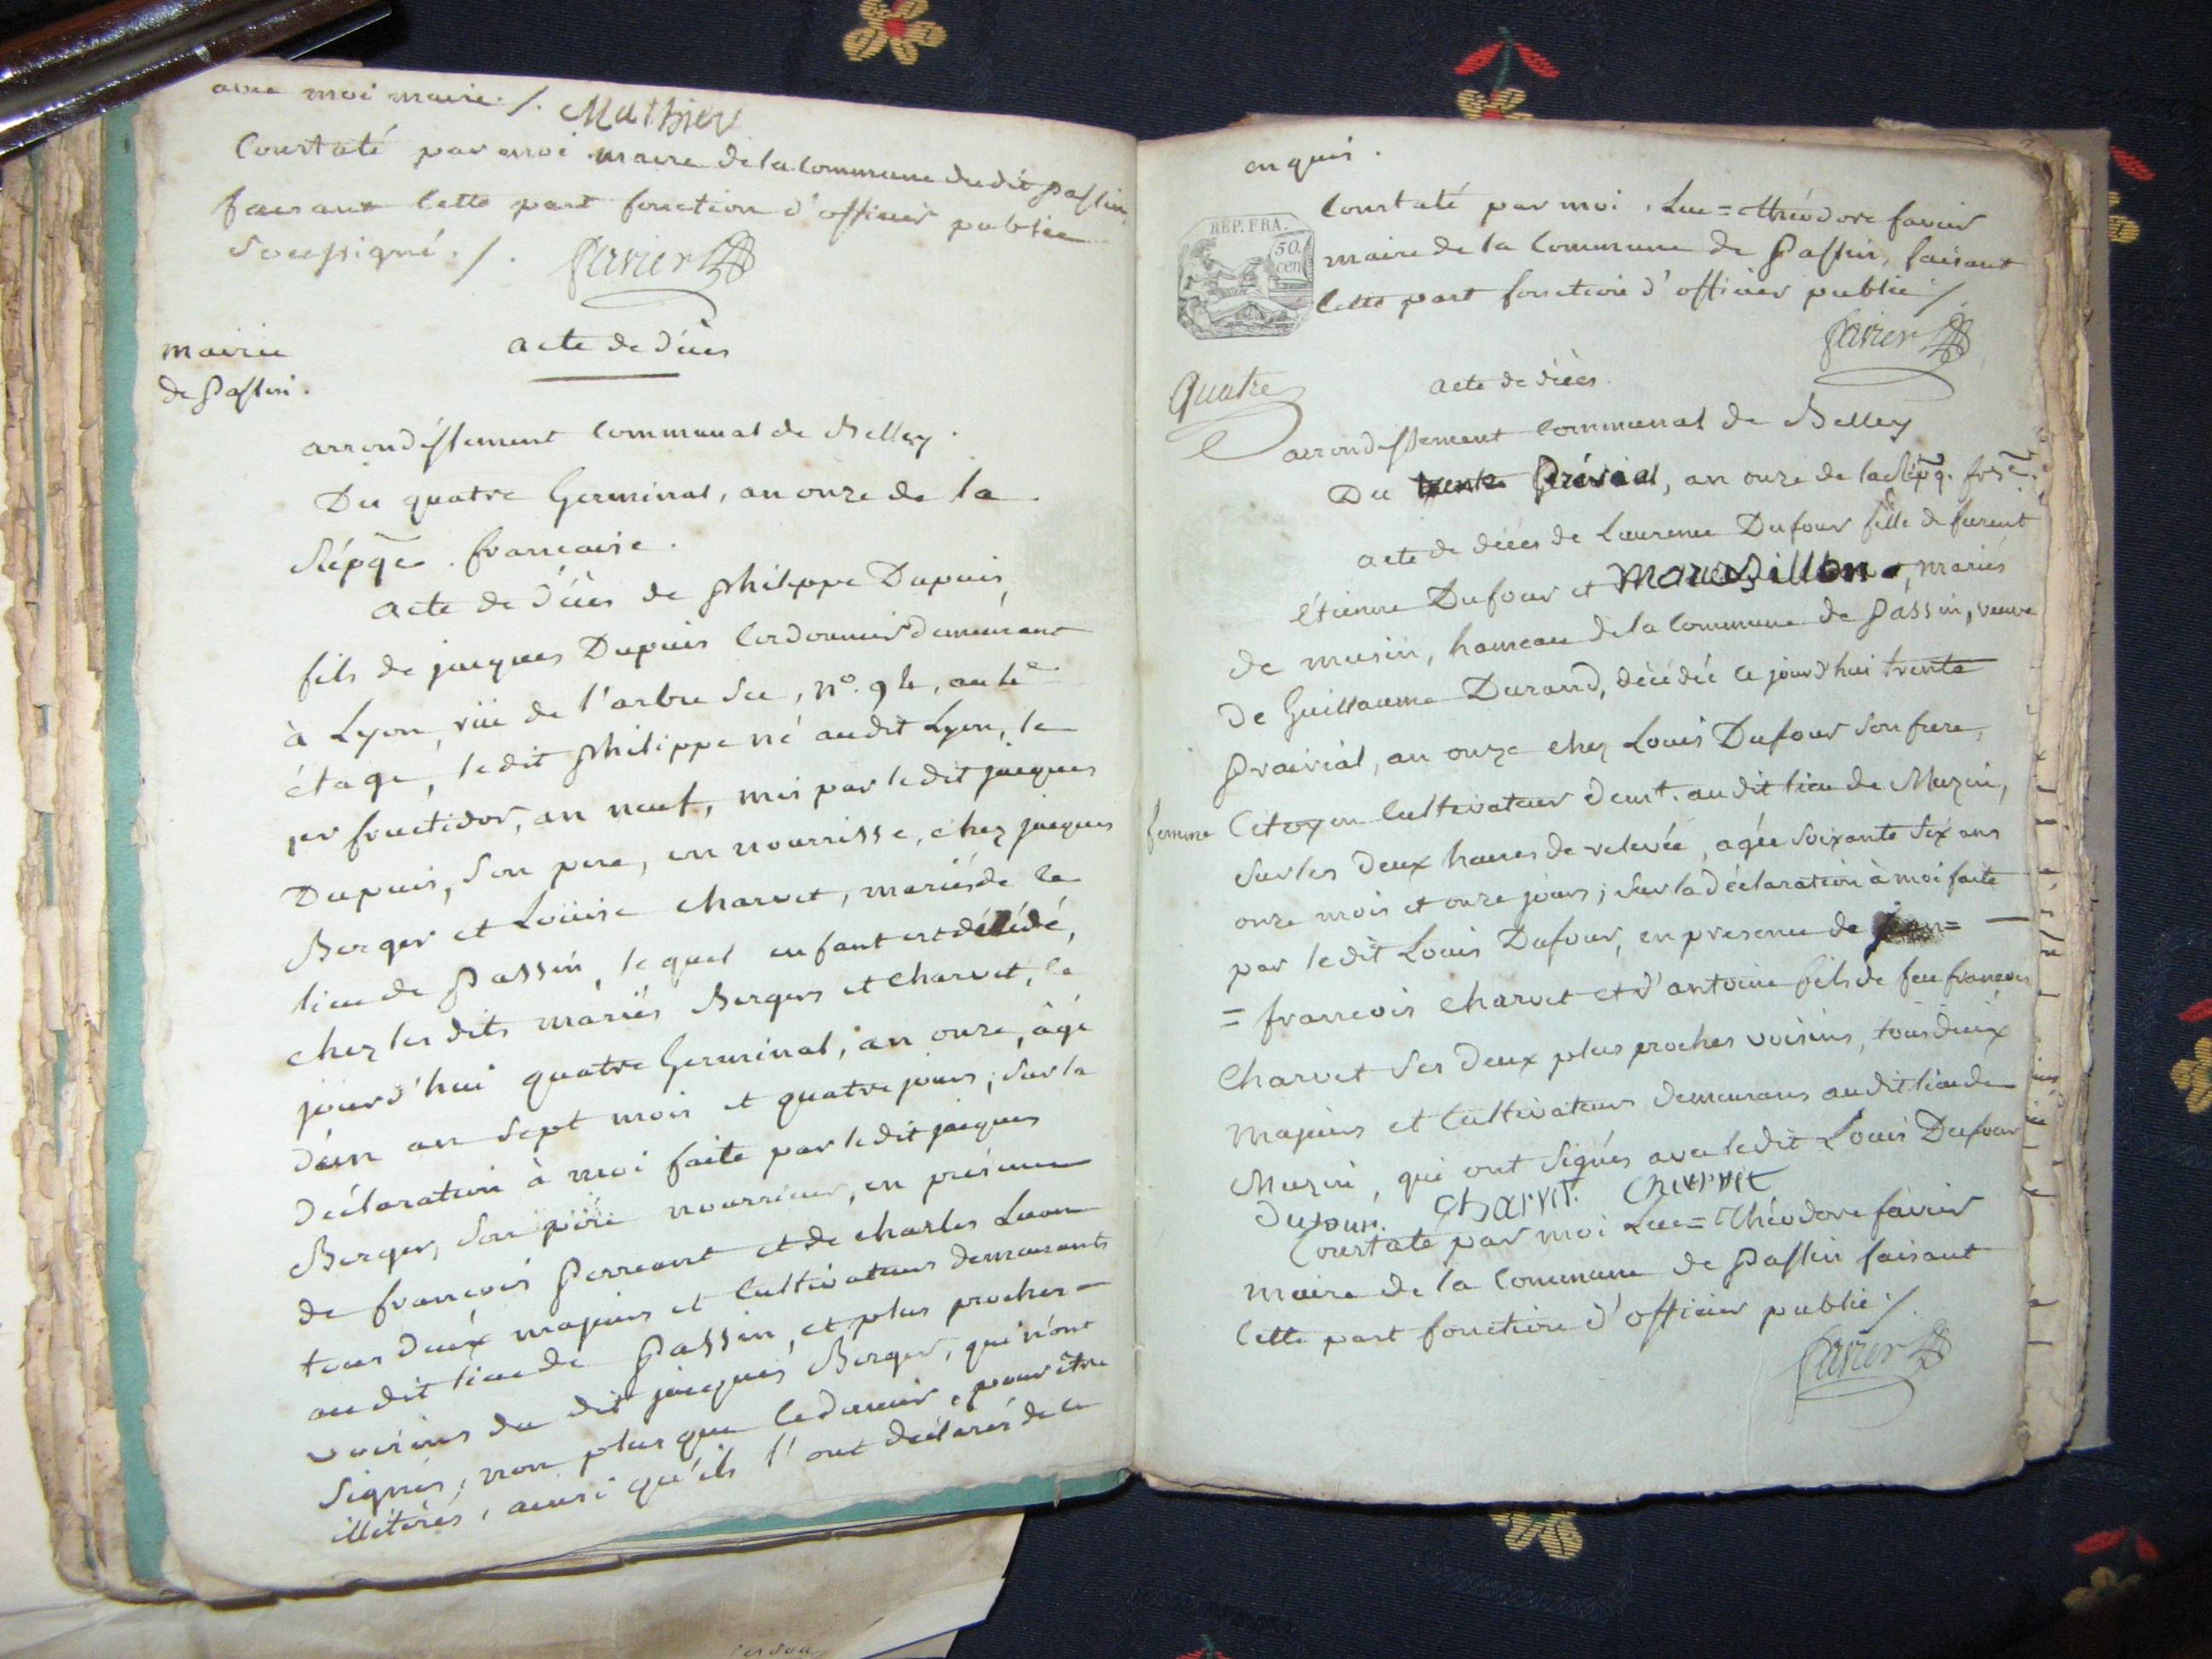 avec moi maire ./. Mathieu
Constaté par moi maire de la Commune du dit passin
faisant cette part fonction d'officier public
soussigné ./. favier
mairie
de passin.
acte de décès
arrondissement Communal de Belley.
Du quatre Germinal, an onze de la
Répq̄e. françoise.
acte de décès de philippe Dupuis,
fils de jacques Dupuis Cordonnier demeurant
à Lyon, rüe de l'arbre sec, n°. 94, au 4e
étage, ledit philippe né audit Lyon, le
per fructidor, an neuf, mis par ledit jacques
Dupuis, son pere, en nourrisse, chez jacques
Berger et Loüise charvet, mariés de ce
lieu de passin, lequel enfant est décédé,
chez les dits mariés Bergers et charvet, ce
jourd'hui quatre Germinal, an onze, âgé
d'un an sept mois et quatre jours; sur la
déclaration à moi faite par ledit jacques
Berger, son père nourricier, en présence
de françois perreant et de charles Luon
tous deux majeurs et Cultivateurs demeurants
audit lieu de passin, et plus proches
voisins du dit jacques Berger, qui n'ont
signés, non plus que ce dernier, pour être
illitérés, ainsi qu'ils l'ont déclarés de ce
enquis.
REP. FRA.
50.
cen
Constaté par moi Luc=théodore favier
maire de la Commune de passin, faisant
cette part fonction d'officier public ./.
favier
Quatre
acte de décès.
arrondissement Communal de Belley
Du trente prérial, an onze de la Répq. frse.
acte de décès de Laurence Dufour fille de furent
étienne Dufour et , mariés
de musin, hameau de la Commune de passin, veuve
de Guillaume Durand, décédée ce jourd'hui trente
prairial, an onze chez Louis Dufour son frere,
femme Citoyen Cultivateur demt. audit lieu de Muzin,
sur les deux heures de relevée, agée soixante six ans
onze mois et onze jours; sur la déclaration à moi faite
par ledit Louis Dufour, en presence de
= françois charvet et d'antoine fils de feu françois
Charvet ses deux plus proches voisins, tous deux
majeurs et Cultivateurs demeurans audit lieu de
Muzin, qui ont signés avec ledit Louis Dufour
dufour. Charvet. Charvet
Constaté par moi Luc=Théodore favier
maire de la Commune de passin faisant
cette part fonction d'officier public ./.
favier